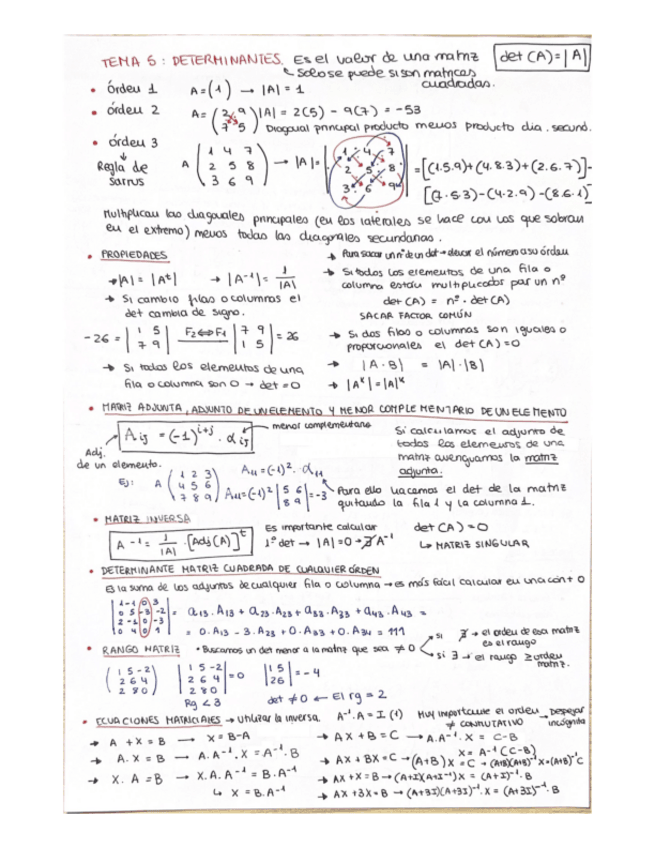 TEMA 5: DETERMINANTES. Es el valor de una matriz det(A)=|A|
↳ Solo se puede si son matrices cuadradas.
• Órdeu 1 A=(1) → |A|=1
• órdeu 2 A=(2 9 / 7 5) |A|= 2(5) - 9(7) = -53
Diagoual principal producto meuos producto dia. secund.
• órdeu 3 A (1 4 7 / 2 5 8 / 3 6 9) → |A|= |1 4 7 / 2 5 8 / 3 6 9| =[(1.5.9)+(4.8.3)+(2.6.7)]-
Regla de Sarrus [(7.5.3)-(4.2.9)-(8.6.1)]
Multiplicau las diagouales principales (eu los laterales se hace cou los que sobrau
eu el extremo) meuos todas las diagouales secundarias.
• PROPIEDADES
→ |A|= |Aᵗ| → |A⁻¹|= 1/|A|
→ Si cambio filas o columuas el
det cambia de signo.
-26 = |1 5 / 7 9| F₂⟺F₁ |7 9 / 1 5| = 26
→ Si todos los elementos de una
fila o columna son 0 → det = 0
→ Para sacar un nº de un det → elevar el número a su órdeu
→ Si todos los elementos de una fila o
columna estáu multiplicados por un nº
det(A) = nº · det(A)
SACAR FACTOR COMÚN
→ Si dos filas o columnas son iguales o
proporcionales el det(A)=0
→ |A·B| = |A|·|B|
→ |Aᵏ|=|A|ᵏ
• MATRIZ ADJUNTA, ADJUNTO DE UN ELEMENTO Y MENOR COMPLEMENTARIO DE UN ELEMENTO
Aij = (-1)^(i+j) · αij ← menor complementario
Adj. de un elemento.
Ej: A (1 2 3 / 4 5 6 / 7 8 9) A₁₁=(-1)²·α₁₁
A₁₁=(-1)² |5 6 / 8 9| =-3
Si calculamos el adjunto de
todos los elementos de una
matriz averiguamos la matriz
adjunta.
Para ello hacemos el det de la matriz
quitando la fila 1 y la columna 1.
• MATRIZ INVERSA
A⁻¹= 1/|A| · [Adj(A)]ᵗ
Es importante calcular
1º det → |A|=0 → ∄ A⁻¹
det(A)=0
↳ MATRIZ SINGULAR
• DETERMINANTE MATRIZ CUADRADA DE CUALQUIER ÓRDEN
Es la suma de los adjuntos de cualquier fila o columna → es más fácil calcular eu una con + 0
|1 -1 0 3 / 0 5 -3 -2 / 2 -1 0 -3 / 0 4 0 1| = a₁₃·A₁₃ + a₂₃·A₂₃ + a₃₃·A₃₃ + a₄₃·A₄₃ =
= 0·A₁₃ - 3·A₂₃ + 0·A₃₃ + 0·A₃₄ = 111
• RANGO MATRIZ • Buscamos un det menor a la matriz que sea ≠ 0
si ∄ → el ordeu de esa matriz es el rango
si ∃ → el rango ≥ ordeu matriz.
(1 5 -2 / 2 6 4 / 2 8 0) |1 5 -2 / 2 6 4 / 2 8 0| =0 |1 5 / 2 6| = -4
Rg < 3 det ≠ 0 ← El rg = 2
• ECUACIONES MATRICIALES → Utilizar la inversa. A⁻¹·A = I (1) MUY importante el ordeu ≠ CONMUTATIVO → Despejar incógnita
→ A + X = B → X = B-A
→ A·X = B → A·A⁻¹·X = A⁻¹·B
→ X·A = B → X·A·A⁻¹ = B·A⁻¹
↳ X = B·A⁻¹
→ AX + B = C → A·A⁻¹·X = C-B
X = A⁻¹(C-B)
→ AX + BX = C → (A+B)X = C → (A+B)(A+B)⁻¹X=(A+B)⁻¹C
→ AX + X = B → (A+I)(A+I⁻¹)X = (A+I)⁻¹·B
→ AX + 3X = B → (A+3I)(A+3I)⁻¹·X = (A+3I)⁻¹·B